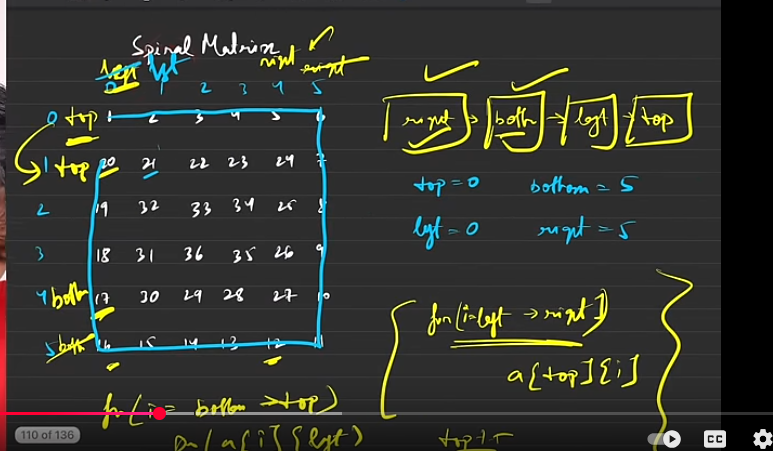 Spiral Matrix
left left right right
0 1 2 3 4 5
0 top 1 2 3 4 5 6
1 top 20 21 22 23 24 7
2 19 32 33 34 25 8
3 18 31 36 35 26 9
4 bottom 17 30 29 28 27 10
5 bottom 16 15 14 13 12 11
right → bottom → left → top
top = 0 bottom = 5
left = 0 right = 5
for(i=left → right)
a[top][i]
top++
for(i = bottom → top)
a[i][left]
110 of 136
CC